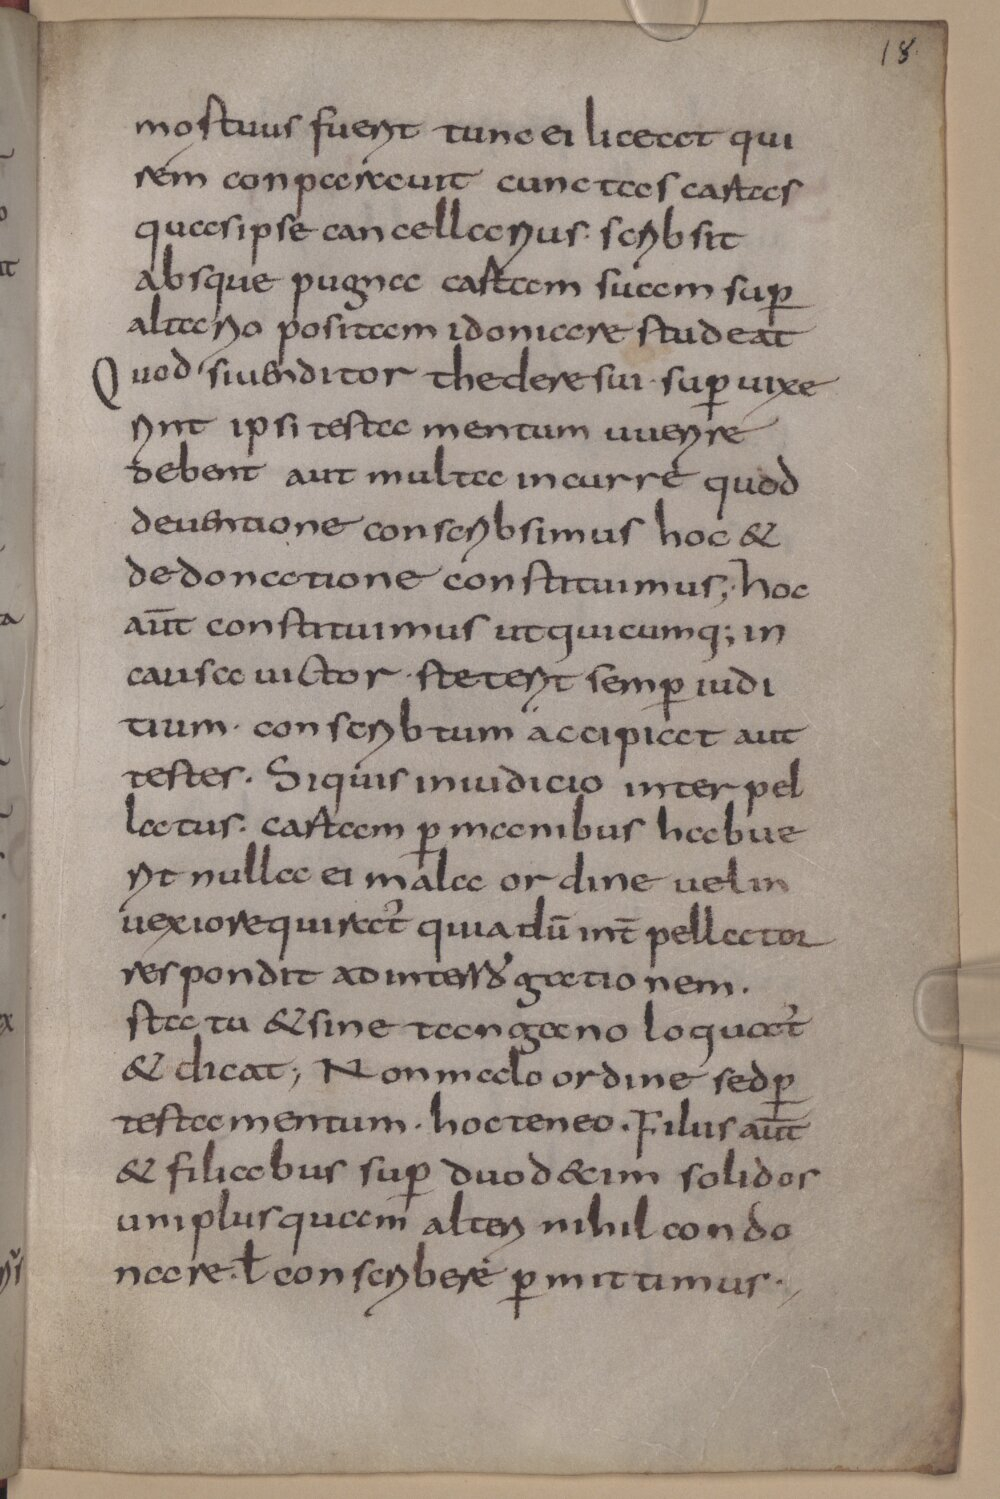 18
mostuus fuerit tunc ei liceat qui
rem conparauit cunctas cartas
quas ipse cancellarius scribsit
absque pugna cartam suam sup
altario positam idoniare studeat
Quod si uenditor t heres sui sup uixe
rint ipsi testamentum uuerire
debent aut multa incurre quod
deuentione conscribsimus hoc &
de donatione constituimus; hoc
aūt constituimus ut quicumq; in
causa uictor steterit semp iudi
tium conscribtum accipiat aut
testes. Si quis in iudicio inter pel
latus cartam p manibus habue
rit nulla ei malo ordine uel in
uexio requirat quia dū int pellator
respondit ad interrogationem.
sta tu & sine tangano loquat
& dicat; Non malo ordine sed p
testamentum hoc teneo. Filus aūt
& filiabus sup duodecim solidos
uni plus quam alteri nihil condo
nare ł conscribere p mittimus